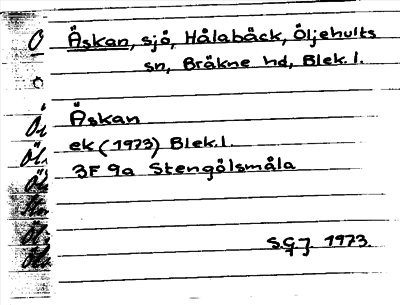 Äskan, sjö, Hålabäck, Öljehults
sn, Bräkne hd, Blek. l.
Äskan
ek (1973) Blek. l.
3F 9a Stengölsmåla
S.G.J. 1973.